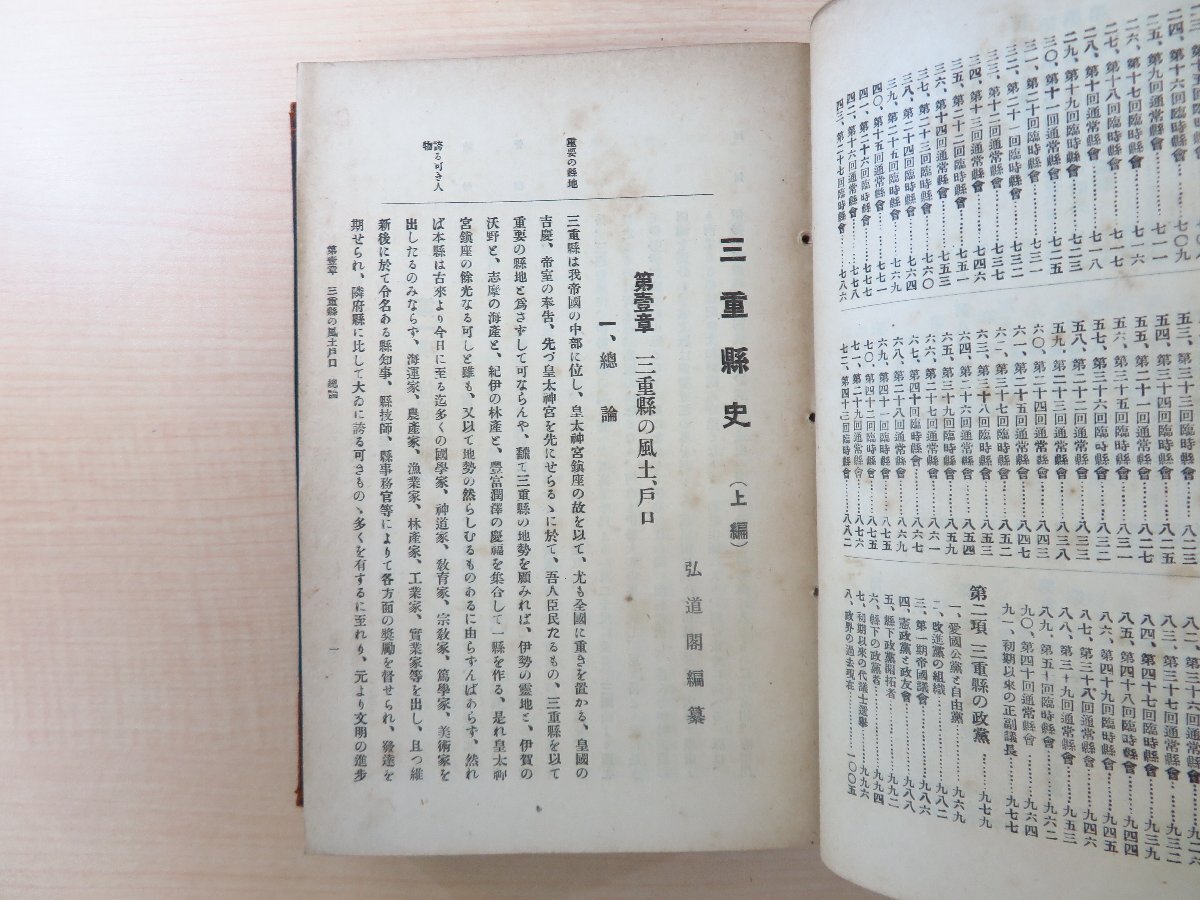 二四、第十六回臨時縣會………七〇九
二五、第九回通常縣會………七一一
二六、第十七回臨時縣會………七一六
二七、第十八回臨時縣會………七一七
二八、第十回通常縣會………七一八
二九、第十九回臨時縣會………七二三
三〇、第十一回通常縣會………七二五
三一、第二十回臨時縣會………七三一
三二、第二十一回臨時縣會………七三三
三三、第十二回通常縣會………七四六
三四、第十三回通常縣會………七五一
三五、第二十二回臨時縣會………七五三
三六、第十四回通常縣會………七六〇
三七、第二十三回臨時縣會………七六四
三八、第二十四回臨時縣會………七六九
三九、第二十五回臨時縣會………七七一
四〇、第十五回通常縣會………七七七
四一、第二十六回臨時縣會………七七八
四二、第十六回通常縣會………七七八
四三、第二十七回臨時縣會………七八六
五三、第三十四回臨時縣會………八二三
五四、第三十四回臨時縣會………八二五
五五、第三十五回臨時縣會………八二七
五六、第三十五回臨時縣會………八三一
五七、第三十六回臨時縣會………八三四
五八、第二十三回通常縣會………八三八
五九、第三十七回臨時縣會………八四三
六〇、第二十四回通常縣會………八四七
六一、第二十五回通常縣會………八五三
六二、第二十六回通常縣會………八五九
六三、第三十八回臨時縣會………八六一
六四、第三十九回臨時縣會………八六九
六五、第二十七回通常縣會………八七五
六六、第四十回臨時縣會………八七六
六八、第二十八回通常縣會………八八二
六九、第四十一回臨時縣會
七〇、第四十二回臨時縣會
七一、第二十九回通常縣會
七二、第四十三回臨時縣會
八四、第四十七回臨時縣會………九三九
八五、第四十八回臨時縣會………九四四
八六、第四十九回臨時縣會………九四五
八七、第三十九回通常縣會………九四六
八八、第三十九回通常縣會………九五三
八九、第五十回臨時縣會………九六二
九〇、第四十回通常縣會………九六三
九一、初期以來の正副議長………九七七
第二項 三重縣の政黨………九七九
一、愛國公黨と自由黨………九六九
二、改進黨の組織………九八二
三、第一期帝國議會………九八六
四、憲政黨と政友會………九八八
五、縣下政黨開拓者………九九二
六、縣下の政黨者………九九四
七、初期以來の代議士選舉………九九六
八、政界の過去現在………一〇〇五
三重縣史(上編)
弘道閣編纂
第壹章 三重縣の風土、戸口
一、總論
重要の縣地
三重縣は我帝國の中部に位し、皇太神宮鎭座の故を以て、尤も全國に重きを置かる、皇國の
吉慶、帝室の奉告、先づ皇太神宮を先にせらるゝに於て、吾人臣民たるもの、三重縣を以て
重要の縣地と爲さずして可ならんや、飜て三重縣の地勢を顧みれば、伊勢の靈地と、伊賀の
沃野と、志摩の海產と、紀伊の林產と、豐富潤澤の慶福を集合して一縣を作る、是れ皇太神
宮鎭座の餘光なる可しと雖も、又以て地勢の然らしむるものあるに由らずんばあらず、然れ
誇る可き人
物
ば本縣は古來より今日に至る迄多くの國學家、神道家、敎育家、宗敎家、篤學家、美術家を
出したるのみならず、海運家、農產家、漁業家、林產家、工業家、實業家等を出し、且つ維
新後に於て令名ある縣知事、縣技師、縣事務官等によりて各方面の奬勵を督せられ、發達を
期せられ、隣府縣に比して大ゐに誇る可きものゝ多くを有するに至れり、元より文明の進步
第壹章 三重縣の風土戸口 總論
一